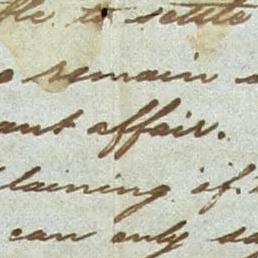 to settle
remain
affair.
laining of
can only